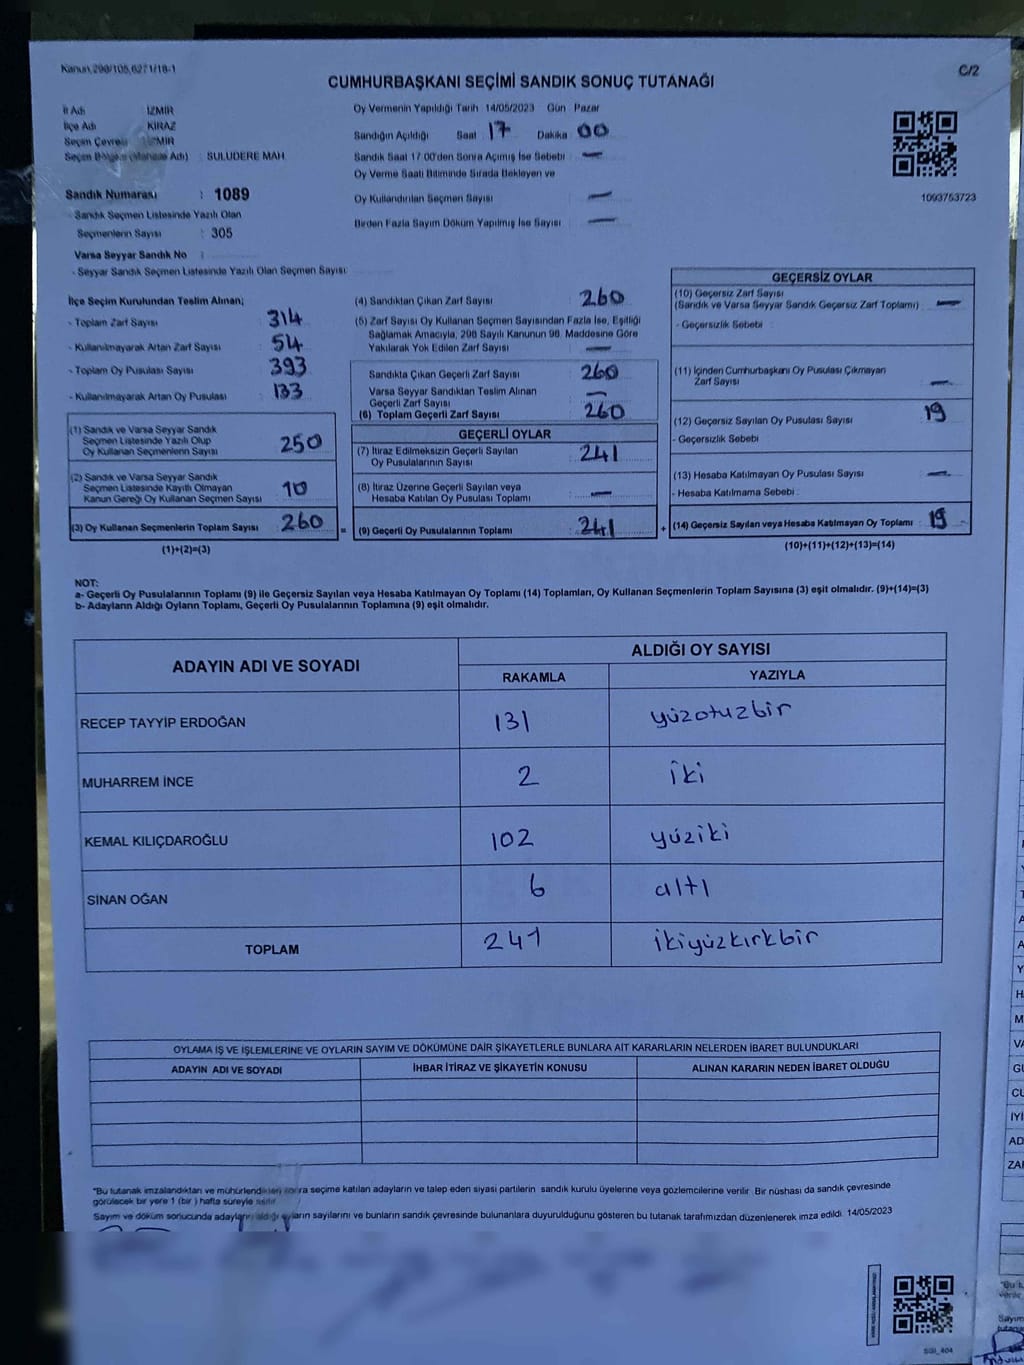 Kanun,298/105,6271/18-1
C/2
CUMHURBAŞKANI SEÇİMİ SANDIK SONUÇ TUTANAĞI
İl Adı İZMİR
İlçe Adı KİRAZ
Seçim Çevresi İZMİR
Seçim Bölgesi (Mahalle Adı) SULUDERE MAH
Sandık Numarası : 1089
- Sandık Seçmen Listesinde Yazılı Olan
Seçmenlerin Sayısı : 305
Varsa Seyyar Sandık No :
- Seyyar Sandık Seçmen Listesinde Yazılı Olan Seçmen Sayısı:
Oy Vermenin Yapıldığı Tarih 14/05/2023 Gün Pazar
Sandığın Açıldığı Saat 17 Dakika 00
Sandık Saat 17:00'den Sonra Açımış İse Sebebi —
Oy Verme Saati Bitiminde Sırada Bekleyen ve
Oy Kullandırılan Seçmen Sayısı —
Birden Fazla Sayım Döküm Yapılmış İse Sayısı —
1093753723
İlçe Seçim Kurulundan Teslim Alınan;
- Toplam Zarf Sayısı : 314
- Kullanılmayarak Artan Zarf Sayısı : 54
- Toplam Oy Pusulası Sayısı : 393
- Kullanılmayarak Artan Oy Pusulası : 133
(1) Sandık ve Varsa Seyyar Sandık
Seçmen Listesinde Yazılı Olup
Oy Kullanan Seçmenlerin Sayısı : 250
(2) Sandık ve Varsa Seyyar Sandık
Seçmen Listesinde Kayıtlı Olmayan
Kanun Gereği Oy Kullanan Seçmen Sayısı : 10
(3) Oy Kullanan Seçmenlerin Toplam Sayısı : 260 =
(1)+(2)=(3)
(4) Sandıktan Çıkan Zarf Sayısı : 260
(5) Zarf Sayısı Oy Kullanan Seçmen Sayısından Fazla İse, Eşitliği
Sağlamak Amacıyla, 298 Sayılı Kanunun 98. Maddesine Göre
Yakılarak Yok Edilen Zarf Sayısı : —
Sandıkta Çıkan Geçerli Zarf Sayısı : 260
Varsa Seyyar Sandıktan Teslim Alınan
Geçerli Zarf Sayısı : —
(6) Toplam Geçerli Zarf Sayısı : 260
GEÇERLİ OYLAR
(7) İtiraz Edilmeksizin Geçerli Sayılan
Oy Pusulalarının Sayısı : 241
(8) İtiraz Üzerine Geçerli Sayılan veya
Hesaba Katılan Oy Pusulası Toplamı : —
(9) Geçerli Oy Pusulalarının Toplamı : 241 +
GEÇERSİZ OYLAR
(10) Geçersiz Zarf Sayısı
(Sandık ve Varsa Seyyar Sandık Geçersiz Zarf Toplamı) : —
- Geçersizlik Sebebi :
(11) İçinden Cumhurbaşkanı Oy Pusulası Çıkmayan
Zarf Sayısı : —
(12) Geçersiz Sayılan Oy Pusulası Sayısı : 19
- Geçersizlik Sebebi
(13) Hesaba Katılmayan Oy Pusulası Sayısı : —
- Hesaba Katılmama Sebebi :
(14) Geçersiz Sayılan veya Hesaba Katılmayan Oy Toplamı : 19
(10)+(11)+(12)+(13)=(14)
NOT:
a- Geçerli Oy Pusulalarının Toplamı (9) ile Geçersiz Sayılan veya Hesaba Katılmayan Oy Toplamı (14) Toplamları, Oy Kullanan Seçmenlerin Toplam Sayısına (3) eşit olmalıdır. (9)+(14)=(3)
b- Adayların Aldığı Oyların Toplamı, Geçerli Oy Pusulalarının Toplamına (9) eşit olmalıdır.
ADAYIN ADI VE SOYADI
ALDIĞI OY SAYISI
RAKAMLA YAZIYLA
RECEP TAYYİP ERDOĞAN 131 yüzotuzbir
MUHARREM İNCE 2 iki
KEMAL KILIÇDAROĞLU 102 yüziki
SİNAN OĞAN 6 altı
TOPLAM 241 ikiyüzkırkbir
OYLAMA İŞ VE İŞLEMLERİNE VE OYLARIN SAYIM VE DÖKÜMÜNE DAİR ŞİKAYETLERLE BUNLARA AİT KARARLARIN NELERDEN İBARET BULUNDUKLARI
ADAYIN ADI VE SOYADI İHBAR İTİRAZ VE ŞİKAYETİN KONUSU ALINAN KARARIN NEDEN İBARET OLDUĞU
"Bu tutanak imzalandıktan ve mühürlendikten sonra seçime katılan adayların ve talep eden siyasi partilerin sandık kurulu üyelerine veya gözlemcilerine verilir. Bir nüshası da sandık çevresinde
görülecek bir yere 1 (bir) hafta süreyle asılır.
Sayım ve döküm sonucunda adayların aldığı oyların sayılarını ve bunların sandık çevresinde bulunanlara duyurulduğunu gösteren bu tutanak tarafımızdan düzenlenerek imza edildi. 14/05/2023
SGI_404